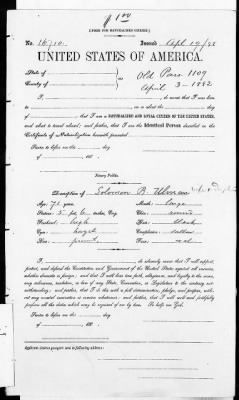 $1 00
[FORM FOR NATURALIZED CITIZEN.]
No. 16716. Issued Apl 19/82
UNITED STATES OF AMERICA.
State of
County of
ss: Old Pass 1109
April 3 - 1882
I, do swear that I was born
in on or about the day
of ; that I am a NATURALIZED AND LOYAL CITIZEN OF THE UNITED STATES,
and about to travel abroad; and further, that I am the Identical Person described in the
Certificate of Naturalization herewith presented.
Sworn to before me this day
of 188 .
Notary Public.
Description of Solomon B Ulman
Age: 72 years Mouth: large
Stature: 5 feet 6 inches, Eng. Chin:
Forehead: high Hair: black
Eyes: hazel Complexion: sallow
Nose: Face: oval
I, do solemnly swear that I will support,
protect, and defend the Constitution and Government of the United States against all enemies,
whether domestic or foreign; and that I will bear true faith, allegiance, and loyalty to the same,
any ordinance, resolution, or law of any State, Convention, or Legislature to the contrary notwithstanding;
and further, that I do this with a full determination, pledge, and purpose, without
any mental reservation or evasion whatsoever; and further, that I will well and faithfully
perform all the duties which may be required of me by law. So help me God.
Sworn to before me this day
of 188 .
Applicant desires passport sent to following address: